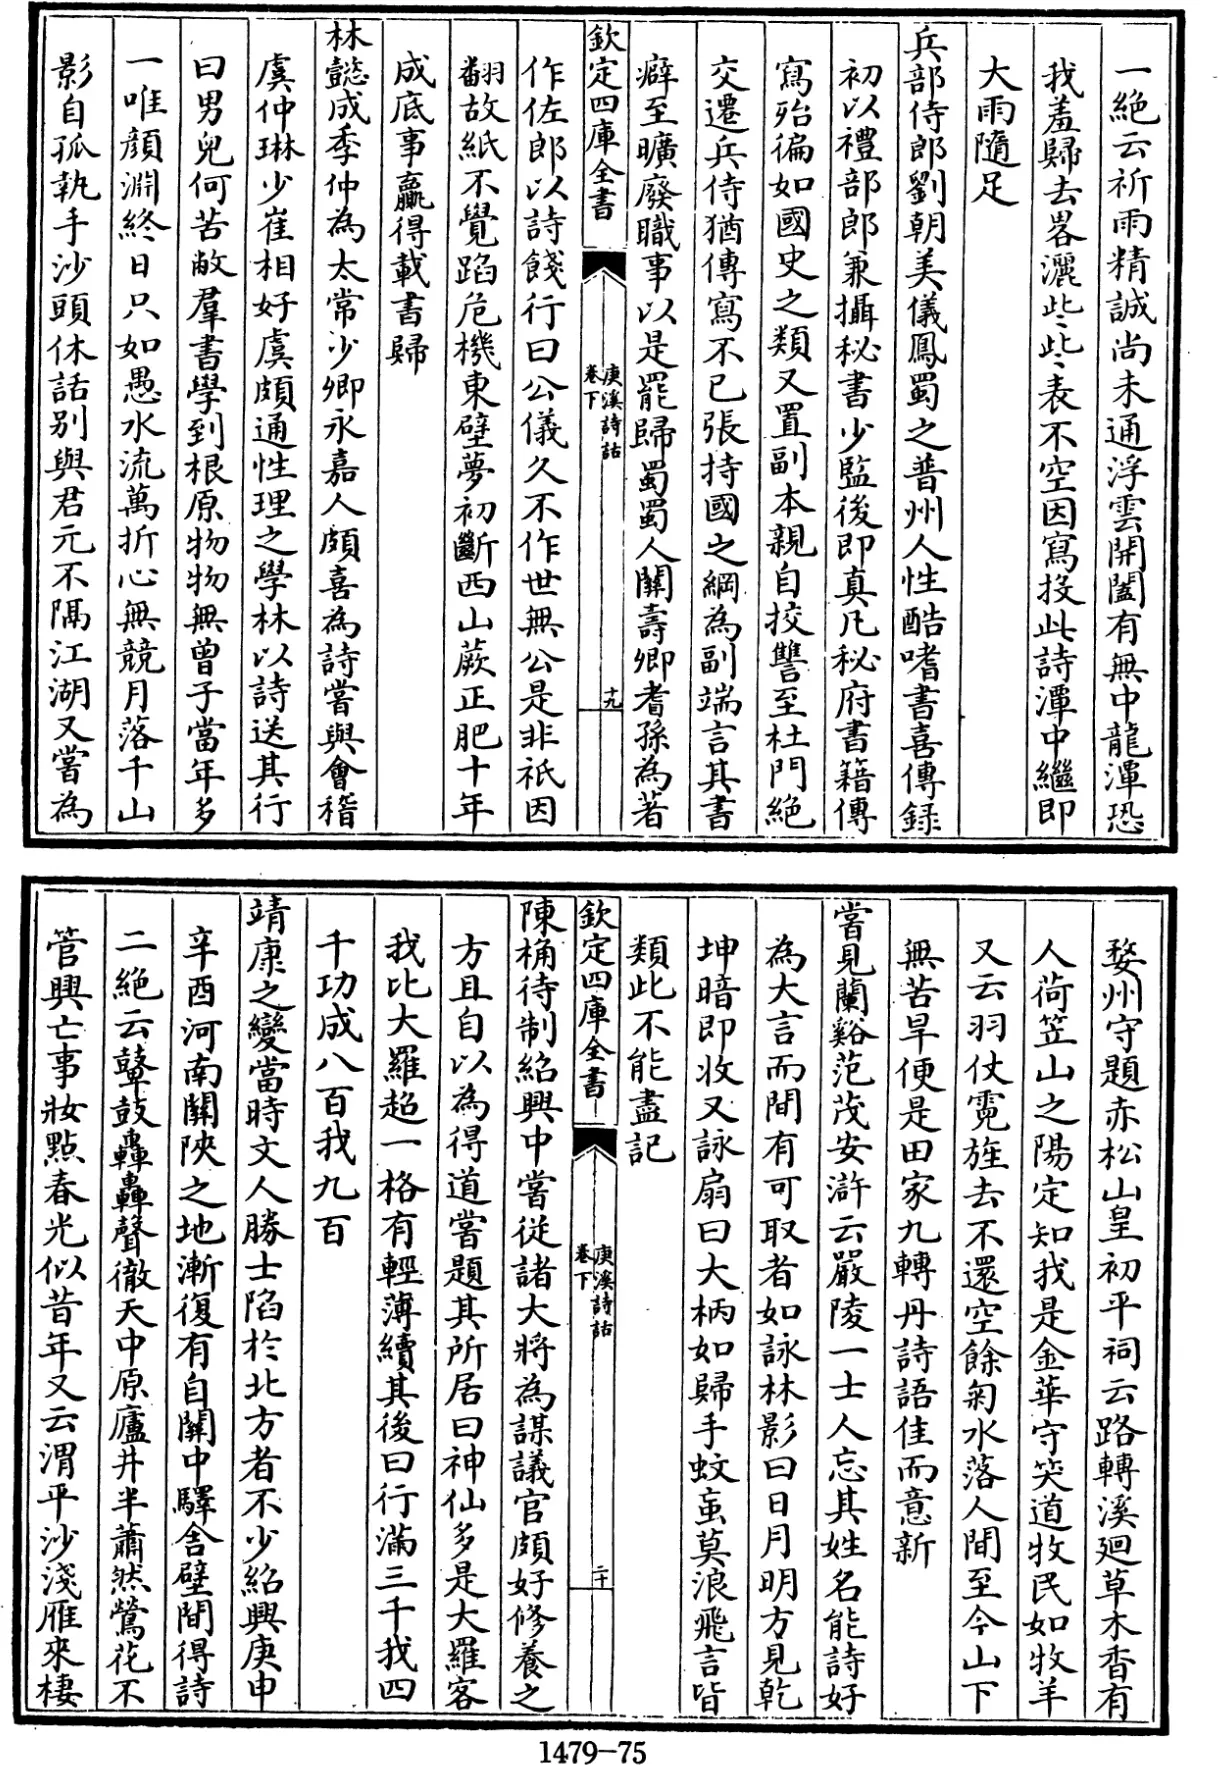 一絶云祈雨精誠尚未通浮雲開闔有無中龍潭恐
我羞歸去畧灑些些表不空因寫投此詩潭中繼即
大雨隨足
兵部侍郎劉朝美儀鳳蜀之普州人性酷嗜書喜傳録
初以禮部郎兼攝秘書少監後即真凡秘府書籍傳
寫殆徧如國史之類又置副本親自挍讐至杜門絶
交遷兵侍猶傳寫不已張持國之綱為副端言其書
癖至曠廢職事以是罷歸蜀蜀人關壽卿耆孫為著
欽定四庫全書
庚溪詩話
卷下
十九
作佐郎以詩餞行曰公儀久不作世無公是非祇因
翻故紙不覺蹈危機東壁夢初斷西山蕨正肥十年
成底事羸得載書歸
林懿成季仲為太常少卿永嘉人頗喜為詩嘗與會稽
虞仲琳少崔相好虞頗通性理之學林以詩送其行
曰男兒何苦敝羣書學到根原物物無曾子當年多
一唯顔淵終日只如愚水流萬折心無競月落千山
影自孤執手沙頭休話别與君元不隔江湖又嘗為
婺州守題赤松山皇初平祠云路轉溪廻草木香有
人荷笠山之陽定知我是金華守笑道牧民如牧羊
又云羽仗霓旌去不還空餘菊水落人間至今山下
無苦旱便是田家九轉丹詩語佳而意新
嘗見蘭谿范茂安滸云嚴陵一士人忘其姓名能詩好
為大言而間有可取者如詠林影曰日月明方見乾
坤暗即收又詠扇曰大柄如歸手蚊䖟莫浪飛言皆
類此不能盡記
欽定四庫全書
庚溪詩話
卷下
二十
陳桷待制紹興中嘗從諸大將為謀議官頗好修養之
方且自以為得道嘗題其所居曰神仙多是大羅客
我比大羅超一格有輕薄續其後曰行滿三千我四
千功成八百我九百
靖康之變當時文人勝士陷於北方者不少紹興庚申
辛酉河南關陜之地漸復有自關中驛舍壁間得詩
二絶云鼙鼓轟轟聲徹天中原廬井半蕭然鶯花不
管興亡事妝點春光似昔年又云渭平沙淺雁來棲
1479-75